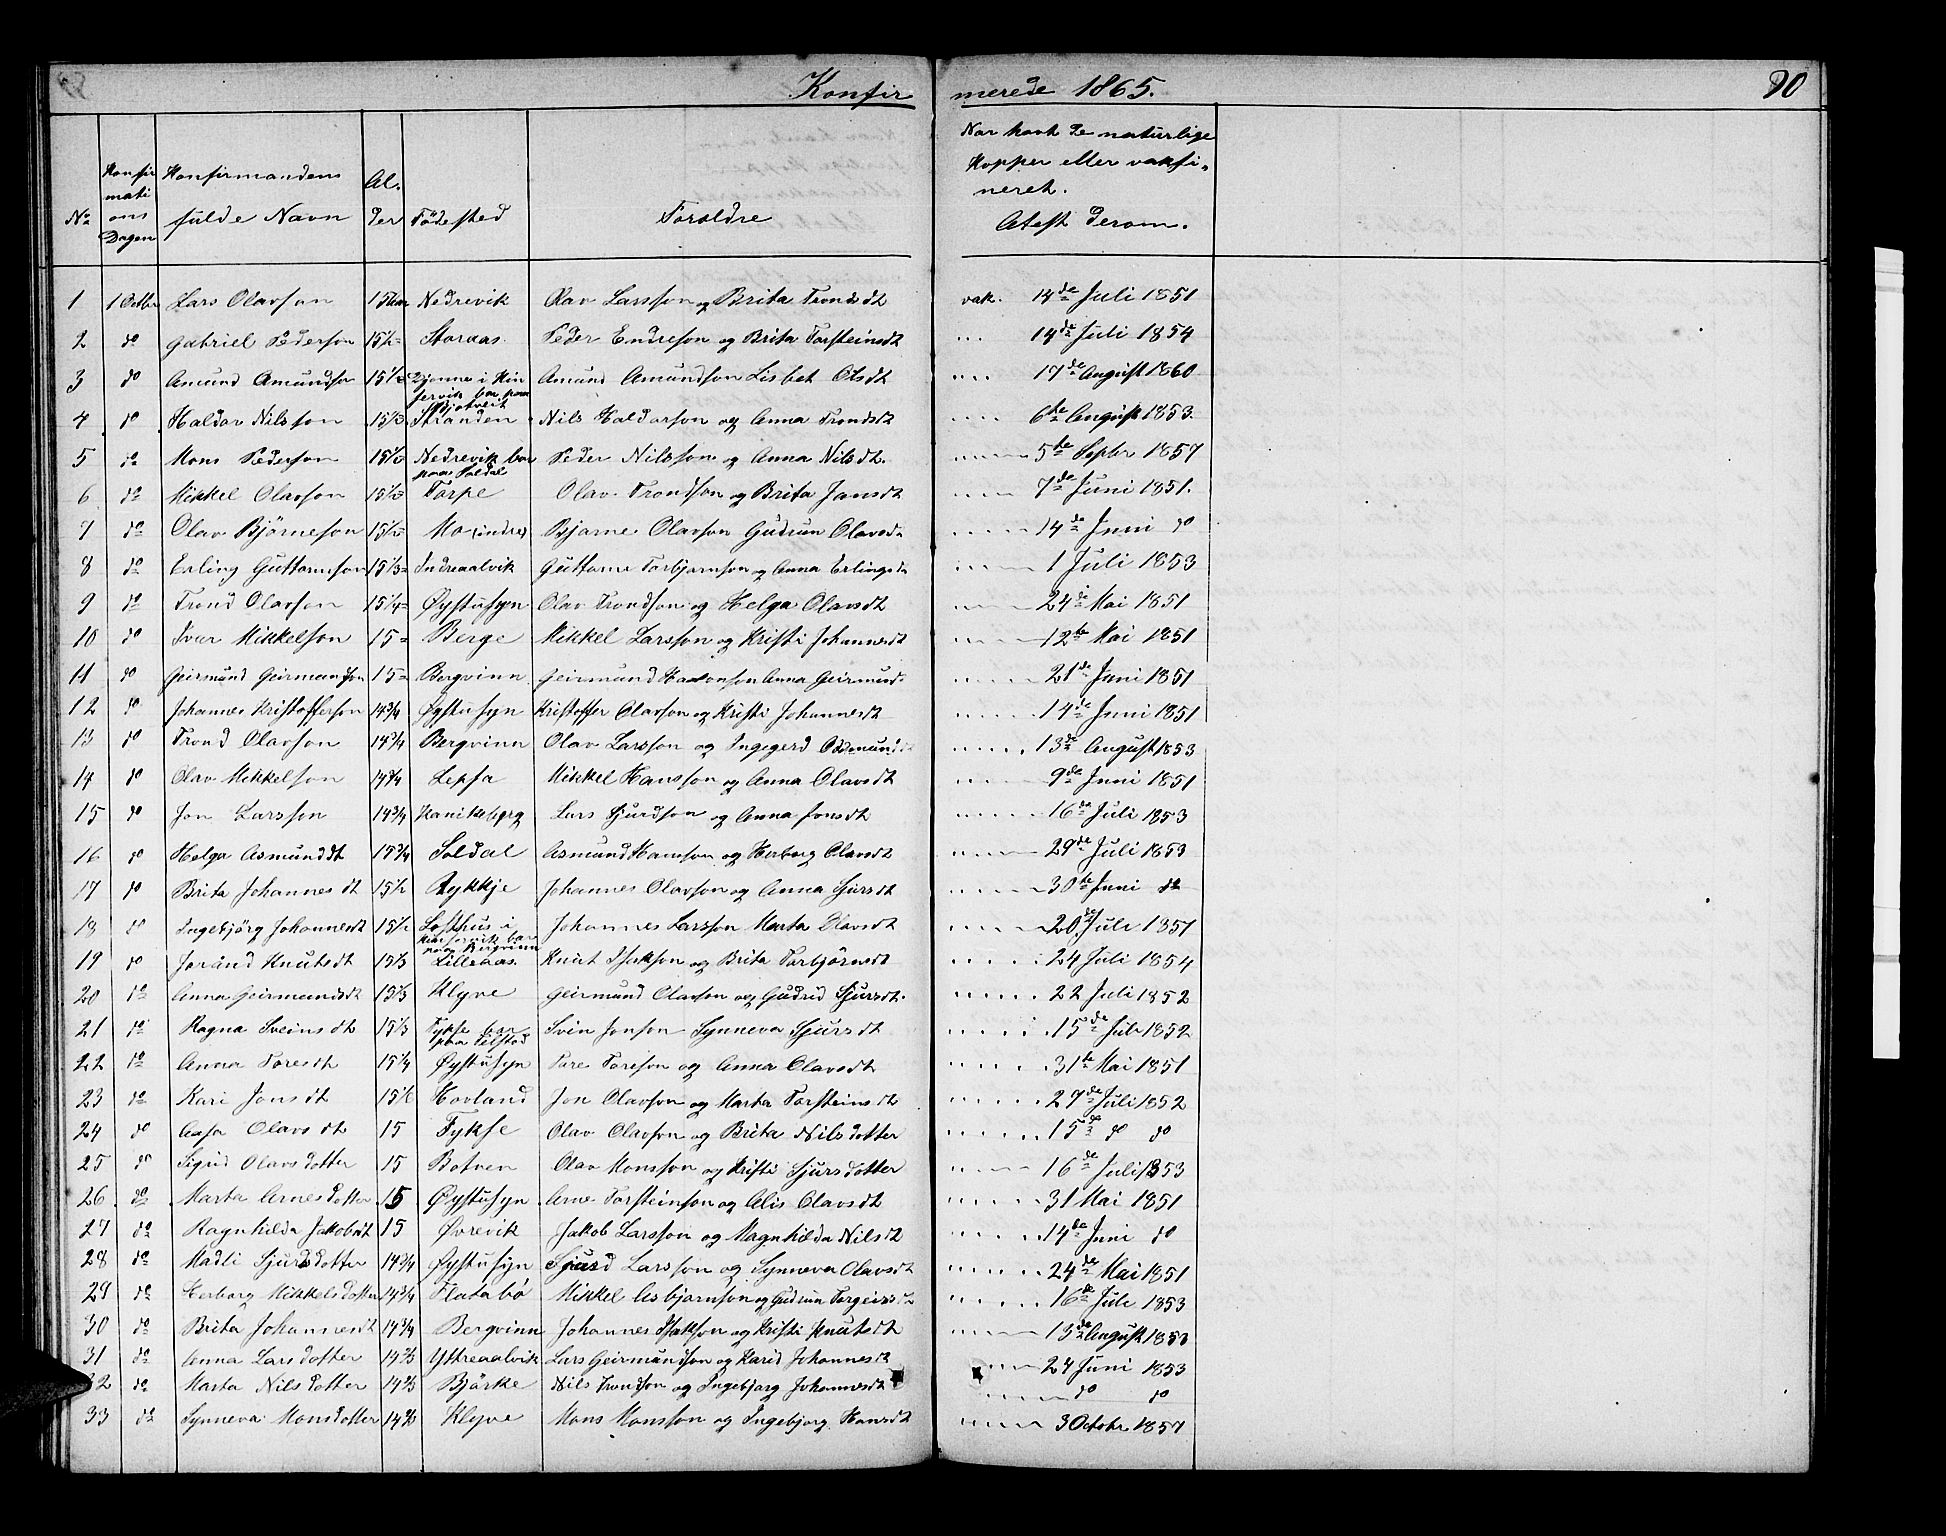 Konfirmerede 1865. 90
No Konfirmations Dagen Konfirmandens fulde Navn Alder Födested Foroldre Nar havt de naturlige Kopper eller vaksineret. Atest derom.
1 1 Octbr Lars Olavson 15 Nedrevik Olav Larsson og Brita Trondsdt vak. 14de Juli 1851
2 do Gabriel Pederson 15½ Storaas Peder Endreson og Brita Torsteinsdt .... 14de Juli 1854
3 do Amund Amundson 15½ Djonne i Kinservik bor paa Bjotveit Amund Amundson Lisbet Olsdt .... 17de August 1860
4 do Haldor Nilsson 15⅓ Stranden Nils Haldorson og Anna Trondsdt .... 6te August 1853.
5 do Mons Pederson 15½ Nedrevik bor paa Soldal Peder Nilsson og Anna Nilsdt. .... 5te Septbr 1857
6 do Mikkel Olavson 15⅓ Torpe Olav Trondson og Brita Jonsdt .... 7de Juni 1851.
7 do Olav Björneson 15½ Mo Bjorne Olavson Gudrun Olavsd .... 14de Juni do
8 do Erling Guttormson 15⅓ Indreaalvik Guttorme Torbjornson og Anna Erlingsd .... 1 Juli 1853
9 do Trond Olavson 15¼ Øystusyn Olav Trondson og Helga Olavsdt .... 24de Mai 1851
10 do Ivar Mikkelson 15 Berge Mikkel Larsson og Kristi Johannesdt .... 12te Mai 1851
11 do Geirmund Geirmundson 15 Bergvinn Geirmund Haavonson Anna Geirmund .... 21de Juni 1851
12 do Johannes Kristofferson 14¾ Øystusyn Kristoffer Olavson og Kristi Johannesdt .... 14de Juni 1851
13 do Trond Olavson 14¾ Bergvinn Olav Larsson og Ingegerd Osmundsdt .... 13de August 1853
14 do Olav Mikkelson 14¾ Lepsa Mikkel Hansson og Anna Olavsdt .... 9de Juni 1851
15 do Jon Larsson 14¾ Kanikeberg Lars Sjurdson og Anna Jonsdt .... 16de Juli 1853
16 do Helga Asmunddt 15¾ Soldal Asmund Hansson og Herborg Olavsdt .... 29de Juli 1853
17 do Brita Johannesdt 15½ Rykkje Johannes Olavson og Anna Sjursdt .... 30te Juni do
18 do Ingebjörg Johannesdt 15½ Lofthus i Kinservik bor paa Bergvinn Johannes Larsson Marta Olavsdt .... 20de Juli 1857
19 do Jorand Knutsdt 15⅓ Lilleaas. Knut Isakson og Brita Torbjörnsdt .... 24 Juli 1854
20 do Anna Geirmundsdt 15⅓ Klyve Geirmund Olavson og Gudrid Sjursdt. .... 22 Juli 1852
21 do Ragna Sveinsdt 15⅓ Fykse bor paa Svein Jonson Synneva Sjursdt .... 15de Juli 1852
22 do Anna Toresdt 15¼ Øystusyn Tore Toreson og Anna Olavsdt .... 31te Mai 1851
23 do Kari Jonsdt 15⅙ Hovland Jon Olavson og Marta Torsteinsdt .... 27de Juli 1852
24 do Aasa Olavsdt 15 Fykse Olav Olavson og Brita Nilsdotter .... 15de do do
25 do Sigrid Olavsdotter 15 Botnen Olav Monsson og Kristi Sjursdotter .... 16de Juli 1853
26 do Marta Arnesdotter 15 Øystusyn Arne Torsteinson og Alis Olavsdt .... 31 Mai 1851
27 do Ragnhilda Jakobsdt 15 Øvrevik Jakob Larsson og Magnhilda Nilsdt .... 14de Juni do
28 do Madli Sjursdotter 14¾ Øystusyn Sjurd Larsson og Synneva Olavsdt .... 24de Mai 1851
29 do Herborg Mikkelsdotter 14¾ Flatabö Mikkel Asbjornson og Gudrun Torgeirsd .... 16de Juli 1853
30 do Brita Johannesdt 14¾ Bergvinn Johannes Isakson og Kristi Knutsdt .... 13de August 1853
31 do Anna Larsdotter 14⅔ Yttreaalvik Lars Geirmundson og Karid Johannesdt .... 24 Juni 1853
32 do Marta Nilsdotter 14⅔ Bjørke Nils Trondson og Ingebjorg Johannesdt .... do do
33 do Synneva Monsdotter 14⅔ Klyve Mons Monsson og Ingebjorg Hansdt .... 3 Octobr. 1857